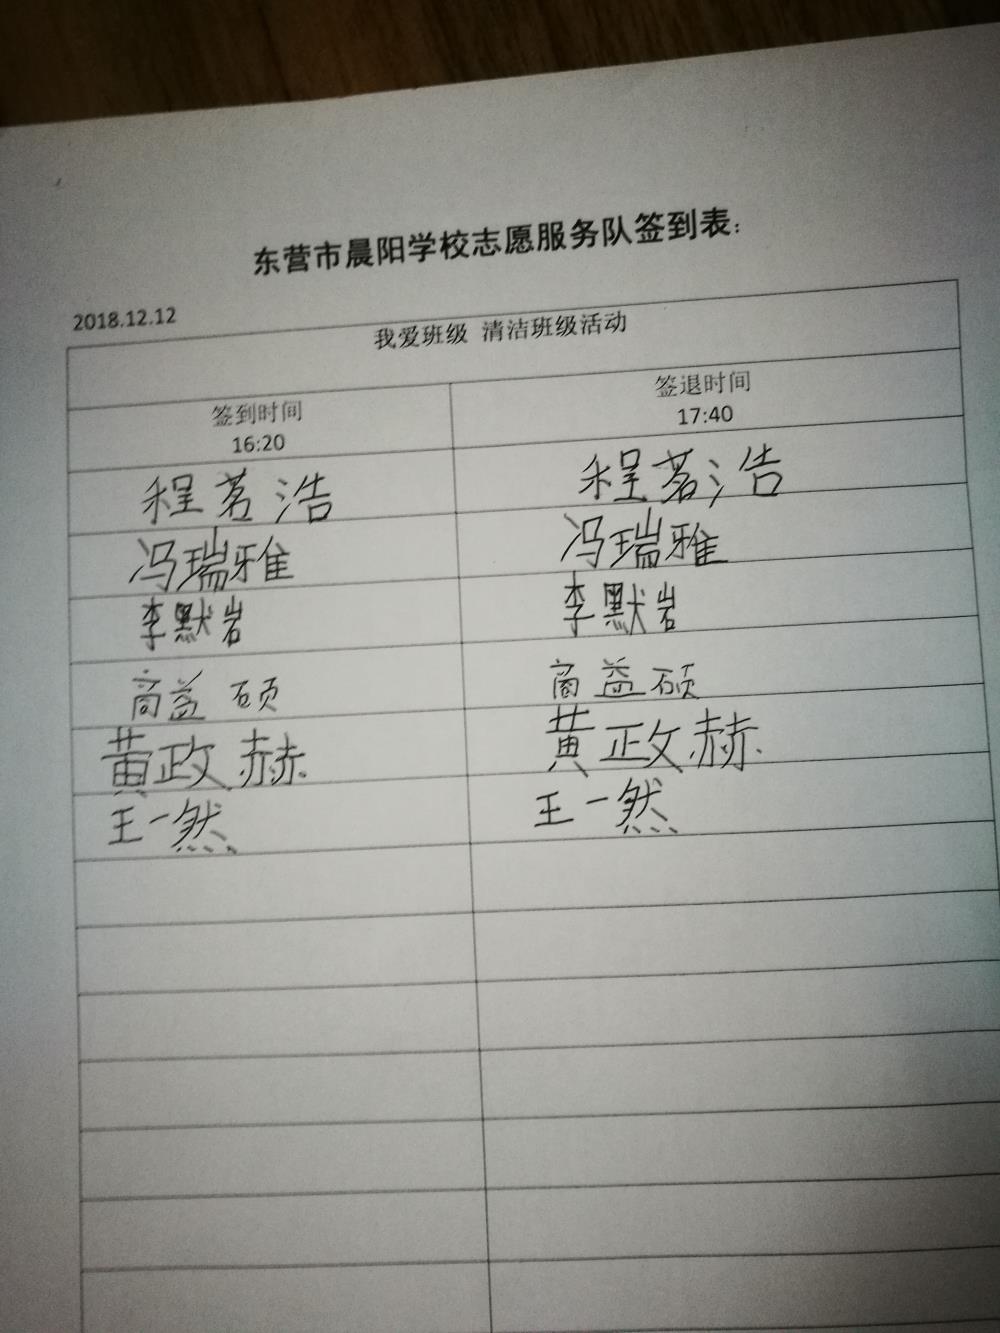 东营市晨阳学校志愿服务队签到表：
2018.12.12
我爱班级 清洁班级活动
签到时间 签退时间
16:20 17:40
程茗浩 程茗浩
冯瑞雅 冯瑞雅
李默岩 李默岩
商益硕 商益硕
黄政赫 黄政赫
王一然 王一然